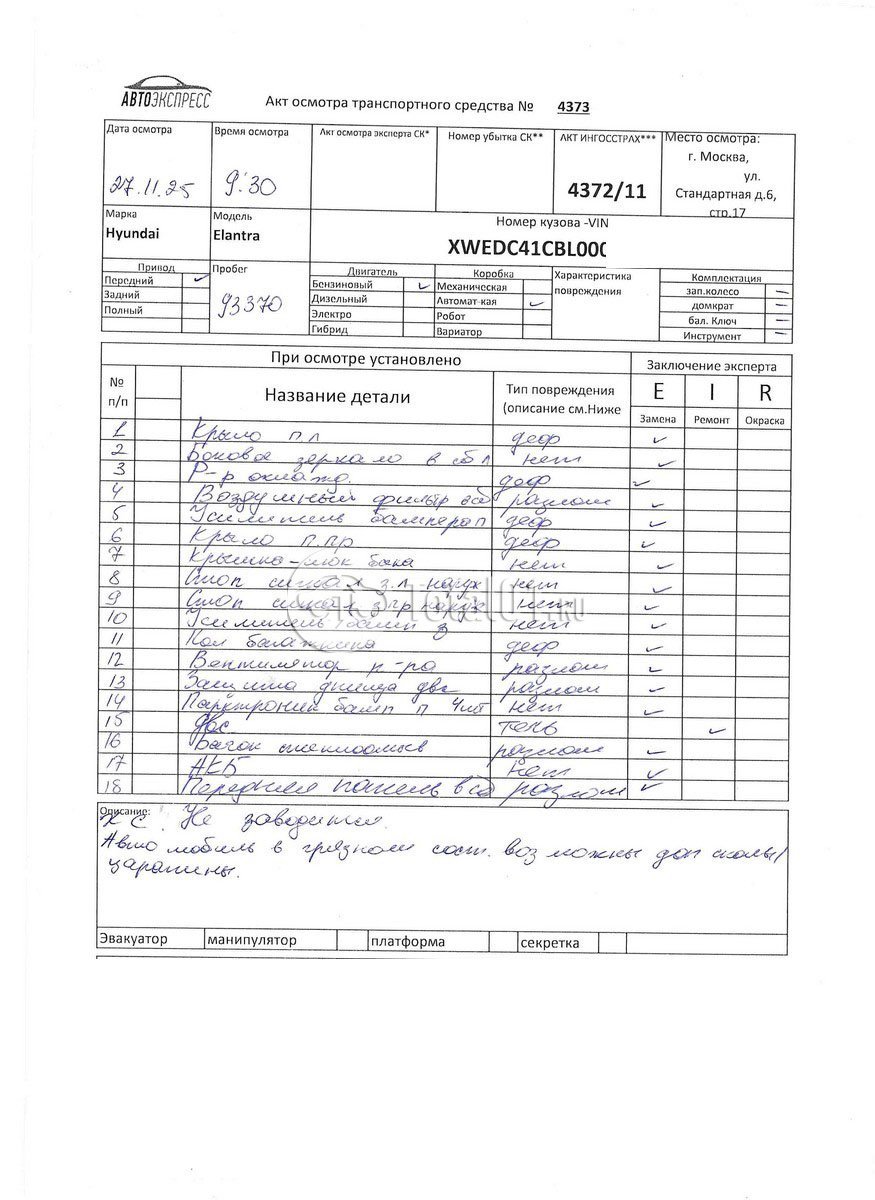 АВТОЭКСПРЕСС
Акт осмотра транспортного средства № 4373
Дата осмотра Время осмотра Акт осмотра эксперта СК* Номер убытка СК** АКТ ИНГОССТРАХ*** Место осмотра:
г. Москва,
ул.
27.11.25 9:30 4372/11 Стандартная д.6,
стр.17
Марка Модель Номер кузова -VIN
Hyundai Elantra XWEDC41CBL000
Привод Пробег Двигатель Коробка Характеристика повреждения Комплектация
Передний ✓ 93370 Бензиновый ✓ Механическая зап.колесо –
Задний Дизельный Автомат-кая ✓ домкрат –
Полный Электро Робот бал. Ключ –
Гибрид Вариатор Инструмент –
При осмотре установлено Заключение эксперта
№ п/п Название детали Тип повреждения (описание см.Ниже E I R
Замена Ремонт Окраска
1 Крыло п л деф ✓
2 Боковое зеркало в сб л нет ✓
3 Р-р охлажд. деф ✓
4 Воздушный фильтр сб разлом ✓
5 Усилитель бампера п деф ✓
6 Крыло п.пр деф ✓
7 Крышка-люк бака нет ✓
8 Стоп сигнал з.л наруж нет ✓
9 Стоп сигнал з пр наруж нет ✓
10 Усилитель бамп з нет ✓
11 Пол багажника деф ✓
12 Вентилятор р-ра разлом ✓
13 Защита днища двс разлом ✓
14 Парктроник бамп п 4шт нет ✓
15 Двс течь ✓
16 Бачок стеклоомыв разлом ✓
17 АКБ нет ✓
18 Передняя панель в сб разлом ✓
Описание:
ХС. Не заводится.
Автомобиль в грязном сост. возможны доп сколы/
царапины.
Эвакуатор манипулятор платформа секретка
Total01.RU